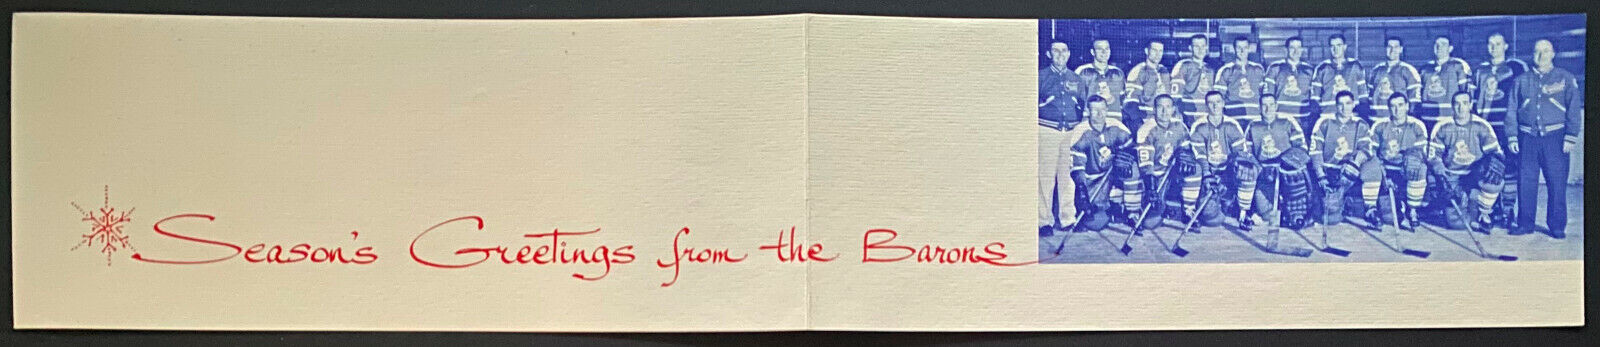 Season's Greetings from the Barons